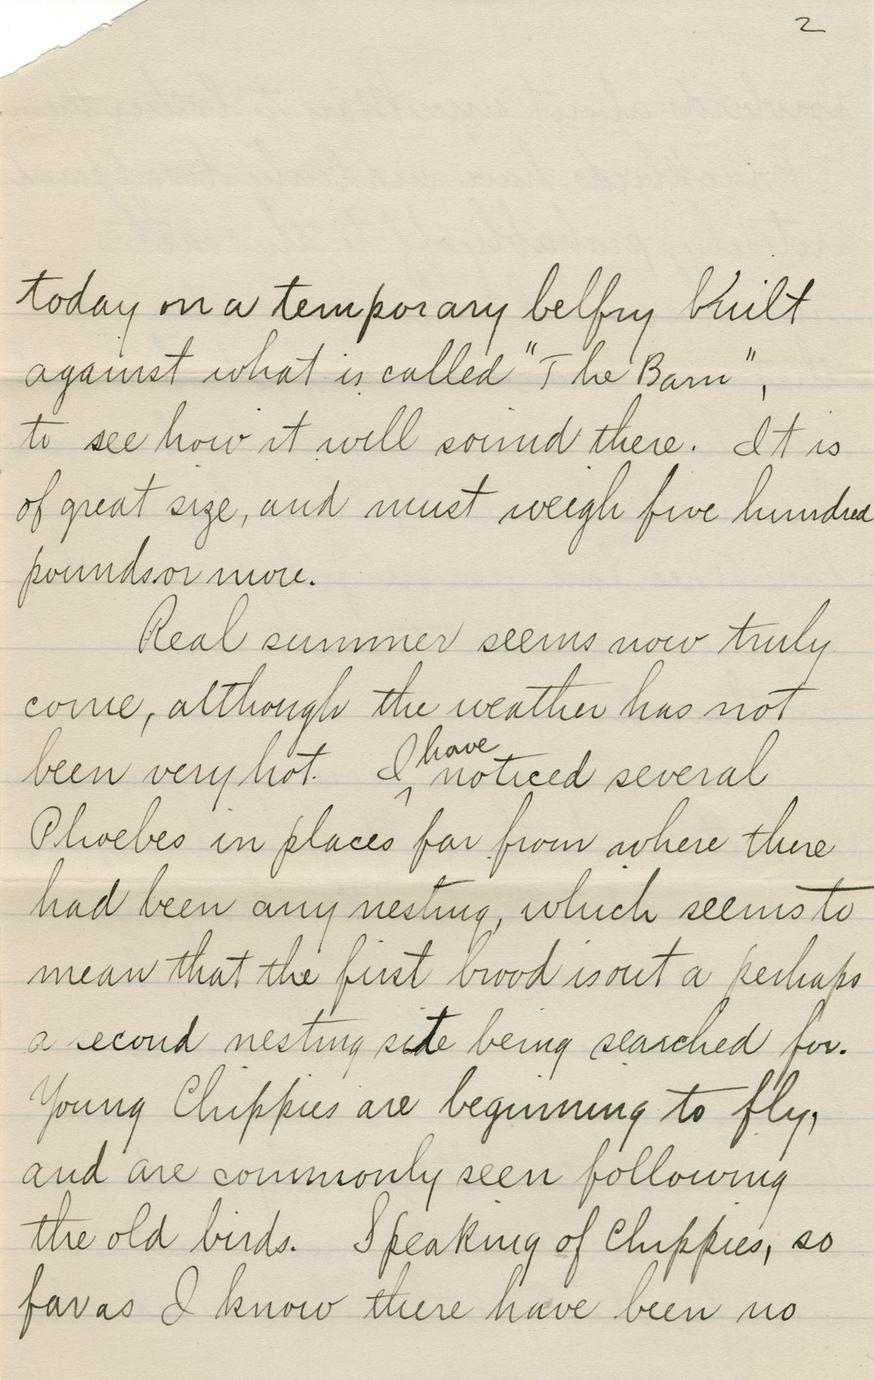 2
today on a temporary belfry built
against what is called "The Barn",
to see how it will sound there. It is
of great size, and must weigh five hundred
pounds or more.
Real summer seems now truly
come, although the weather has not
been very hot. I have noticed several
Phoebes in places far from where there
had been any nesting, which seems to
mean that the first brood is out a perhaps
a second nesting site being searched for.
Young Chippies are beginning to fly,
and are commonly seen following
the old birds. Speaking of Chippies, so
far as I know there have been no